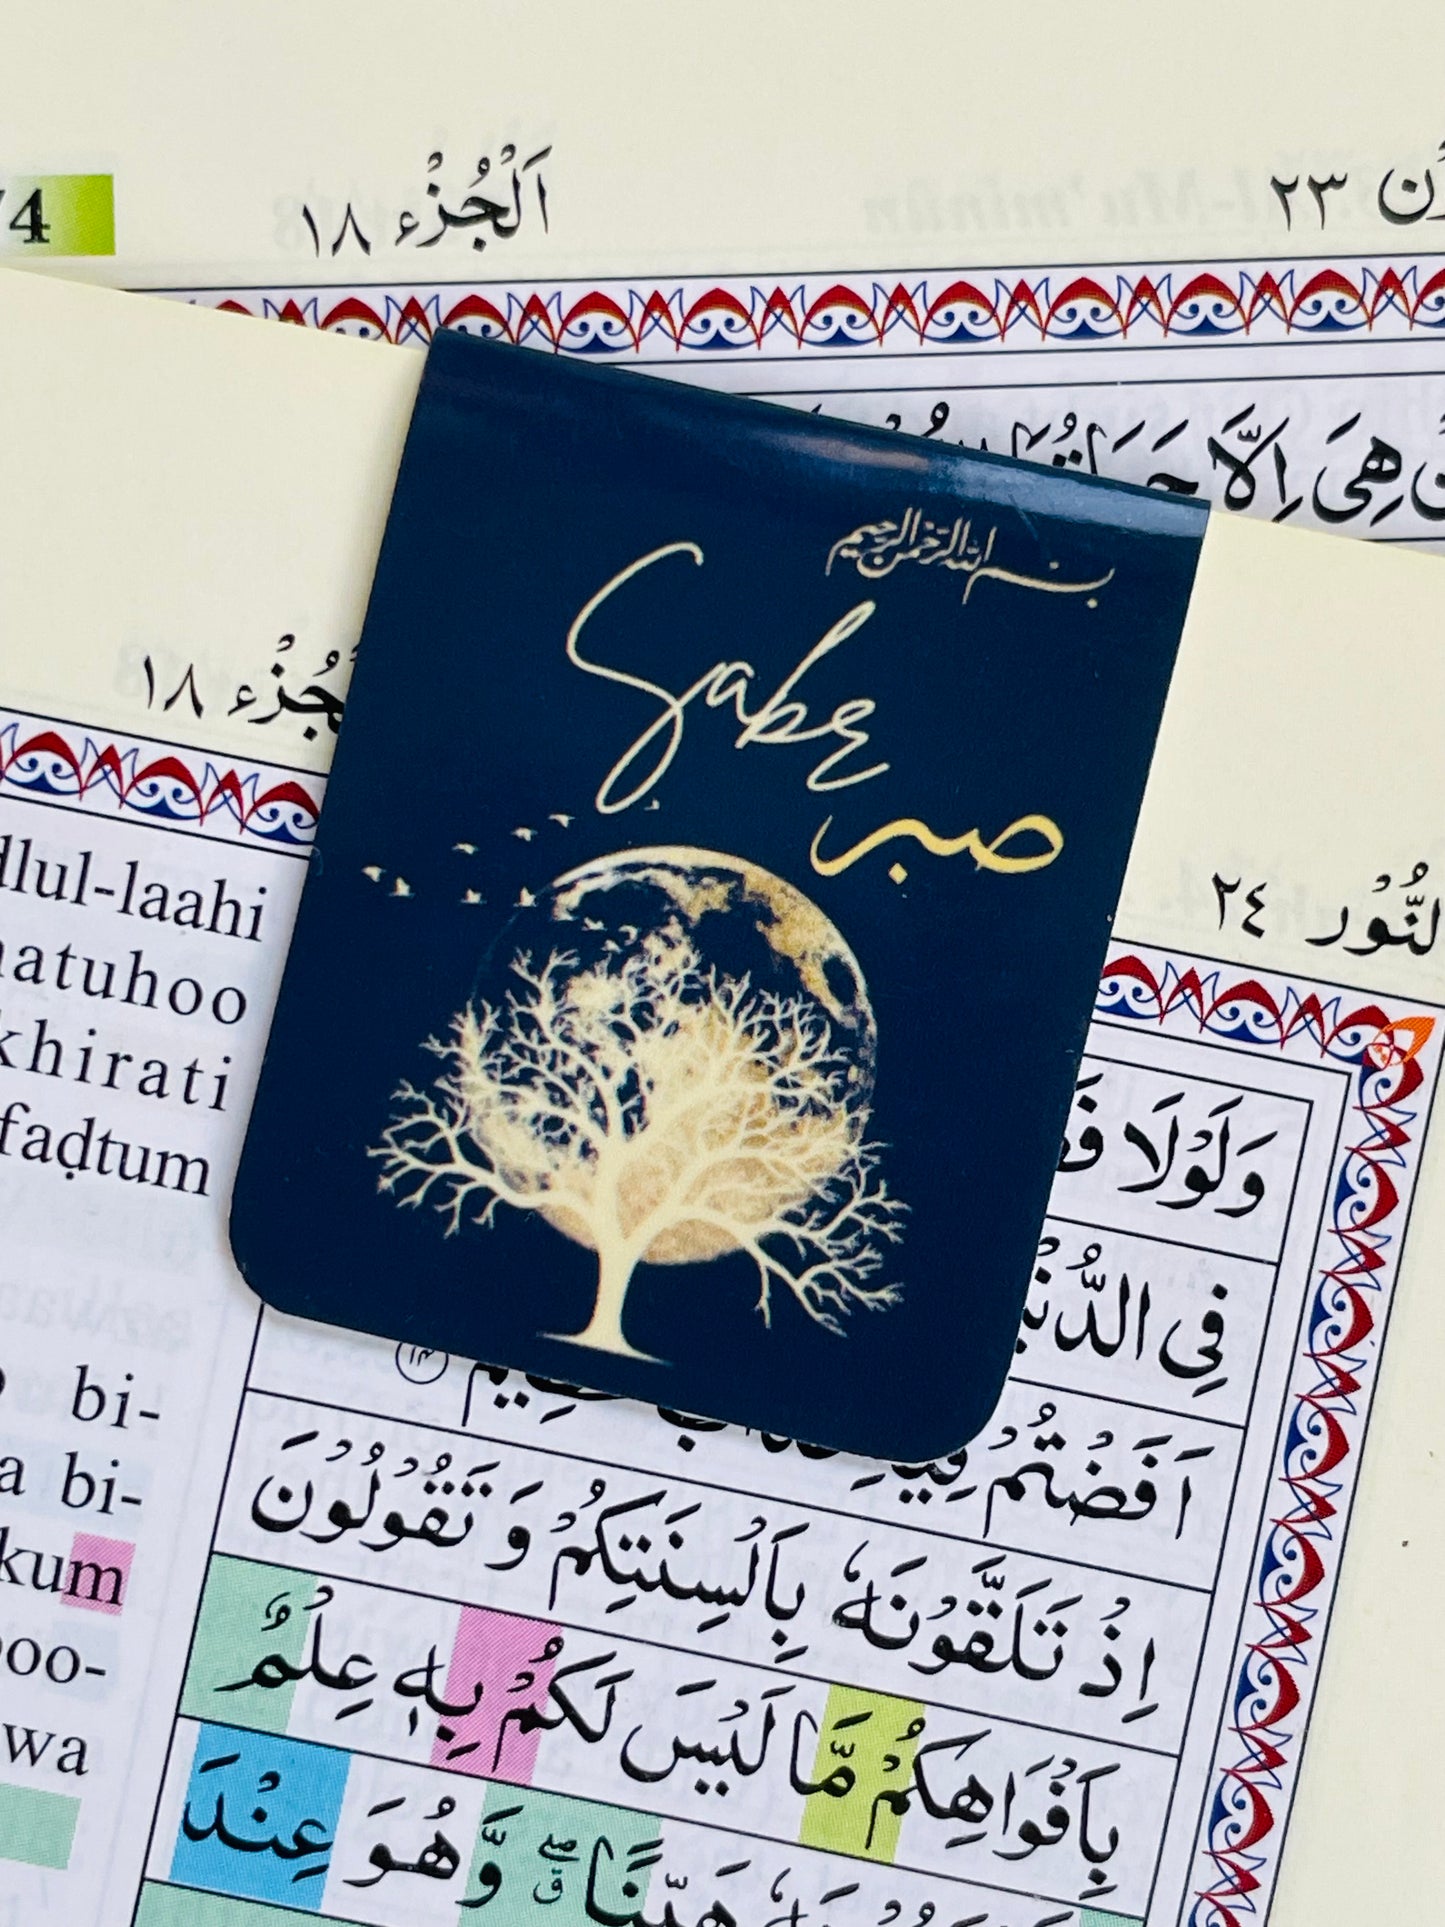 اَلْجُزْء ١٨
٢٣
/4
هِىَ اِلَّا
بسم الله الرحمن الرحيم
Sabr
صبر
١٨
النُّوْر ٢٤
dlul-laahi
atuhoo
khirati
faḍtum
bi-
a bi-
kum
oo-
wa
وَلَوْلَا
فِى الدُّنْيَا
اَفَضْتُمْ فِيْهِ
١٤
اِذْ تَلَقَّوْنَهٗ بِاَلْسِنَتِكُمْ وَ تَقُوْلُوْنَ
بِاَفْوَاهِكُمْ مَّا لَيْسَ لَكُمْ بِهٖ عِلْمٌ
هَيِّنًا ۖق وَّهُوَ عِنْدَ